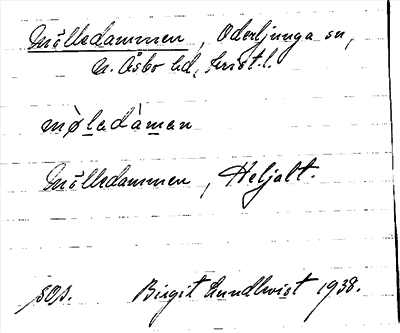 Mölledammen, Oderljunga sn,
N. Åsbo hd, Krist. l.
mø̀ledàmen
Mölledammen, Heljalt.
sOs. Birgit Lundkvist 1938.